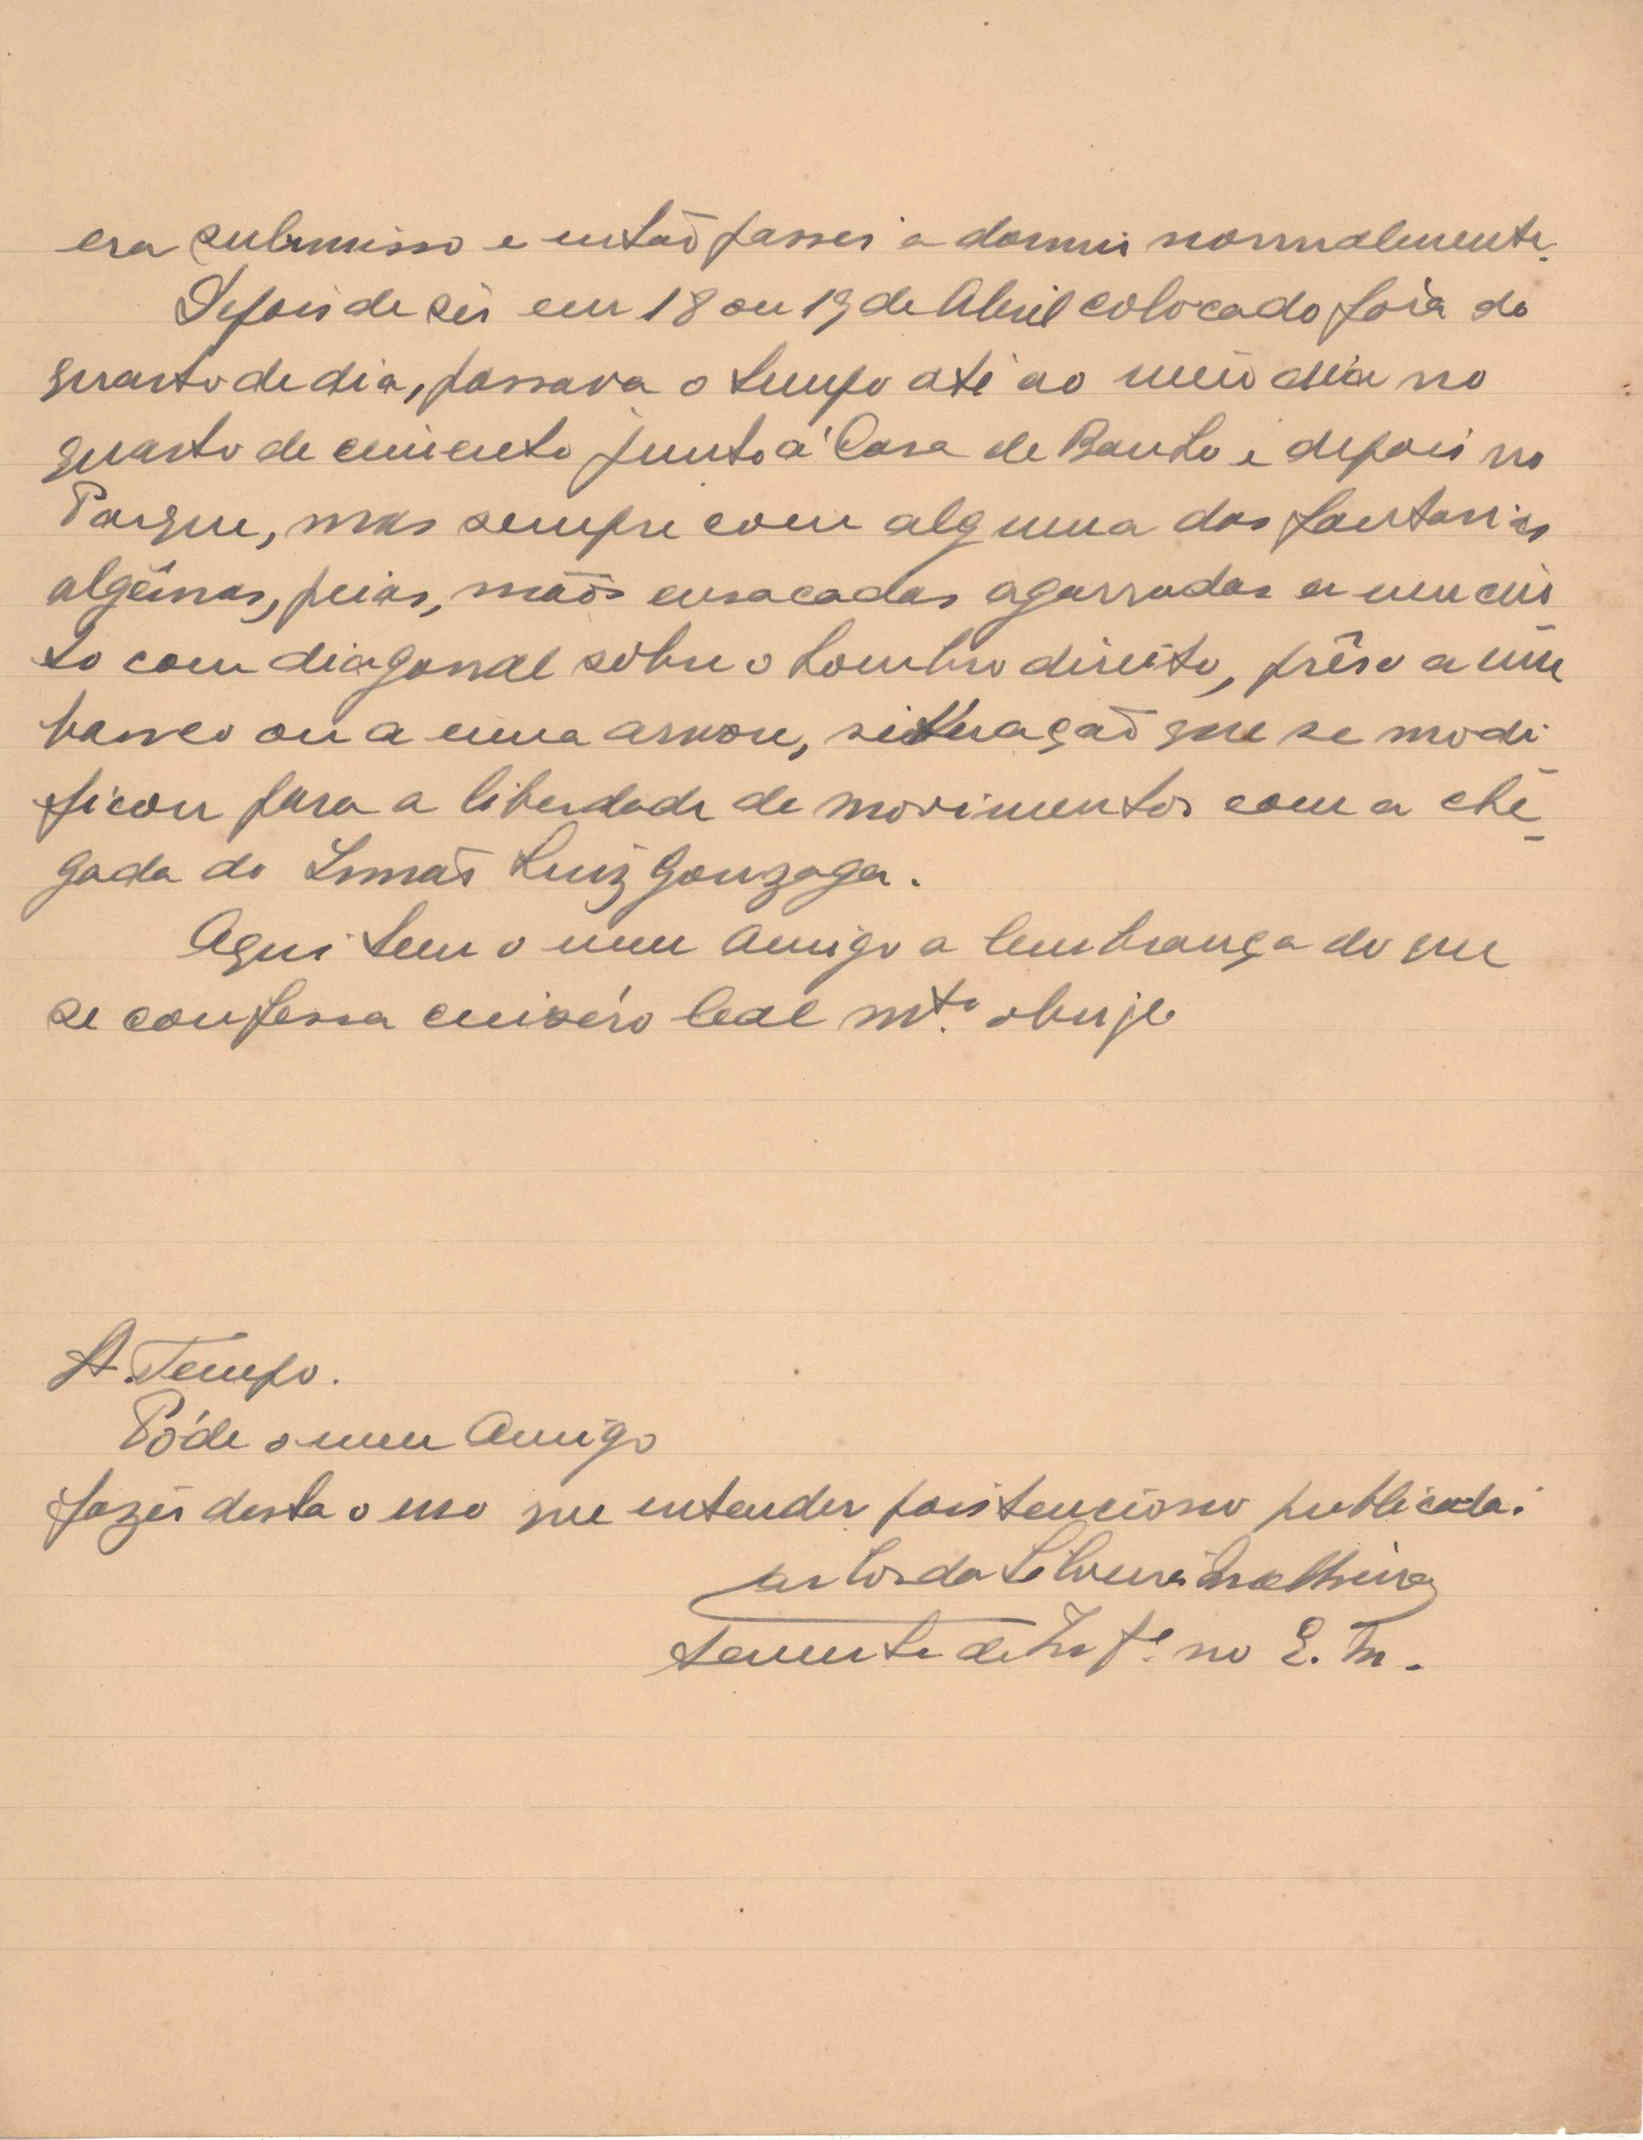 era submisso e então passei a dormir normalmente.
Depois de sêr em 18 ou 19 de Abril colocado fóra do
quarto de dia, passava o tempo até ao meio dia no
quarto de cimento junto á Casa de Banho e depois no
Parque, mas sempre com alguma das fantasias
algêmas, peias, mãos ensacadas agarradas a um cin
to com diagonal sôbre o hombro direito, prêso a um
banco ou a uma arvore, situação que se modi
ficou para a liberdade de movimentos com a che
gada do Irmão Luiz Gonzaga.
Aqui tem o meu Amigo a lembrança do que
se confessa leal mtº.
A. Tempo.
Póde o meu Amigo
fazêr desta o uso que entender pois tenciono publicada.
da Silveira
tenente de Infª. no E. M.